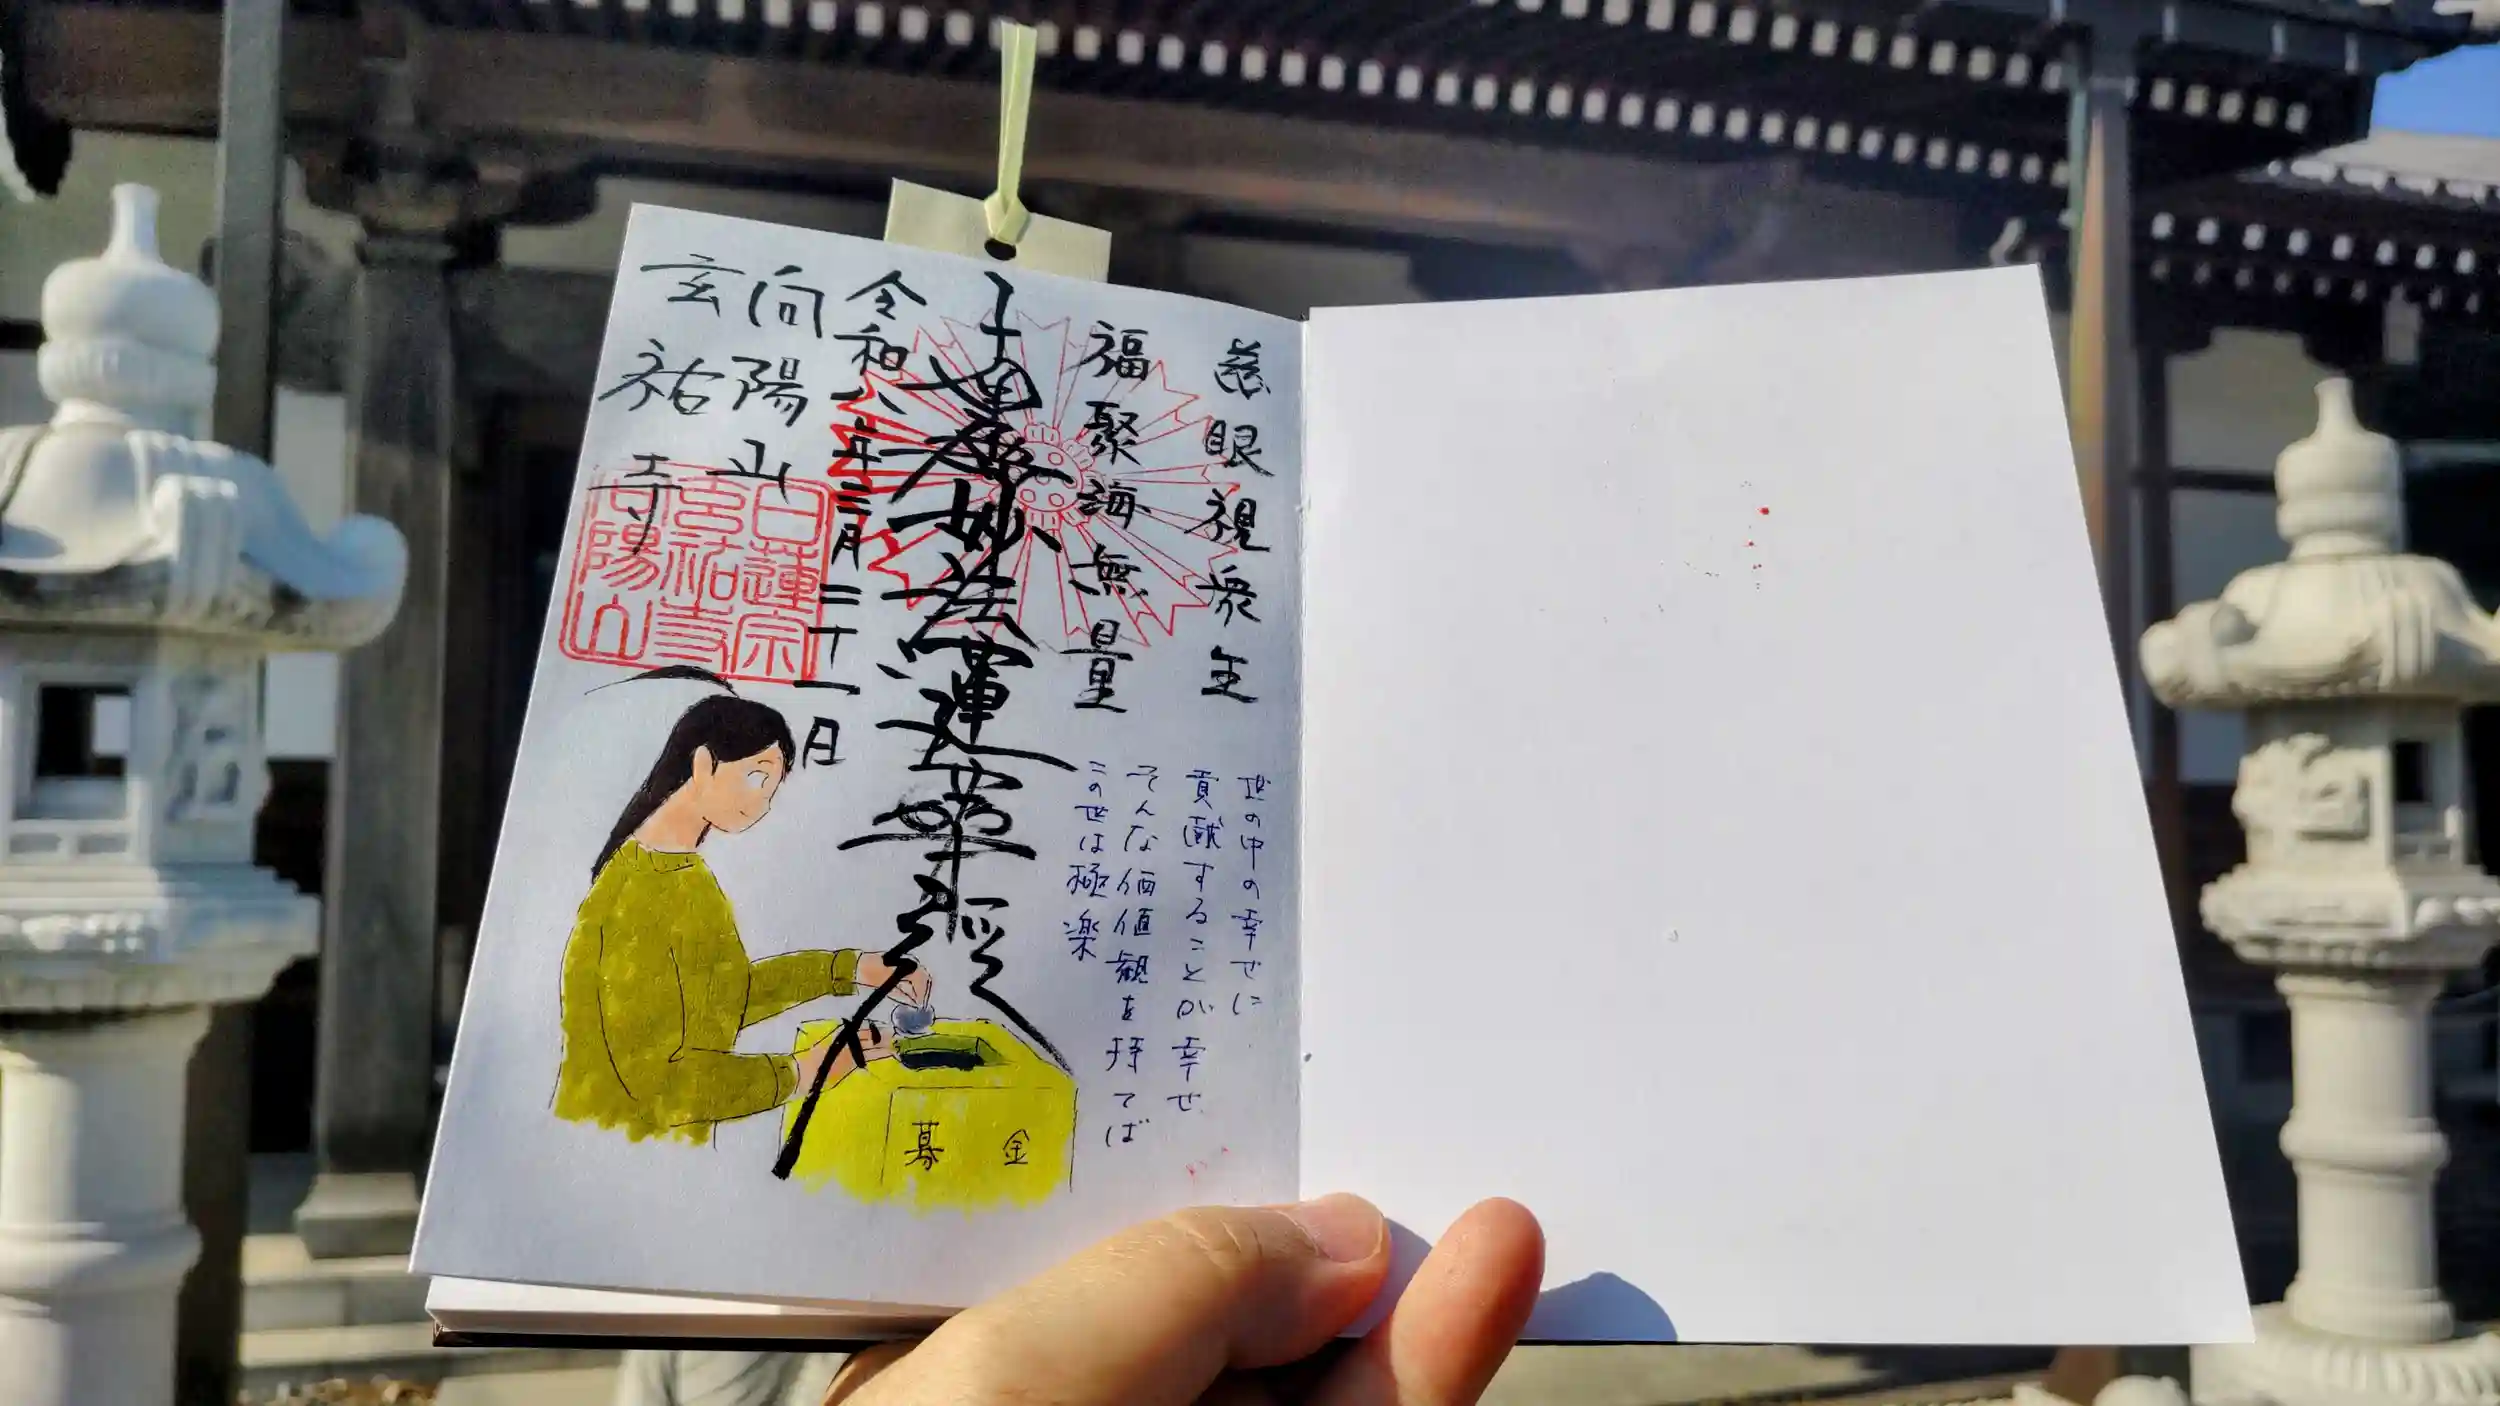 慈眼視衆生
福聚海無量
世の中の幸せに
貢献することが幸せ
そんな価値観を持てば
この世は極楽
南無妙法蓮華経
令和六年三月二十一日
向陽山
玄祐寺
日蓮宗
玄祐寺
向陽山
募金